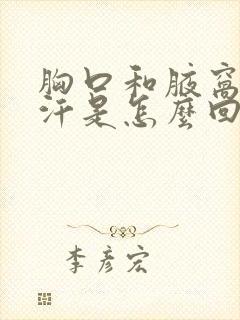 胸口和腋窝
汗是怎麼回
李彦宏